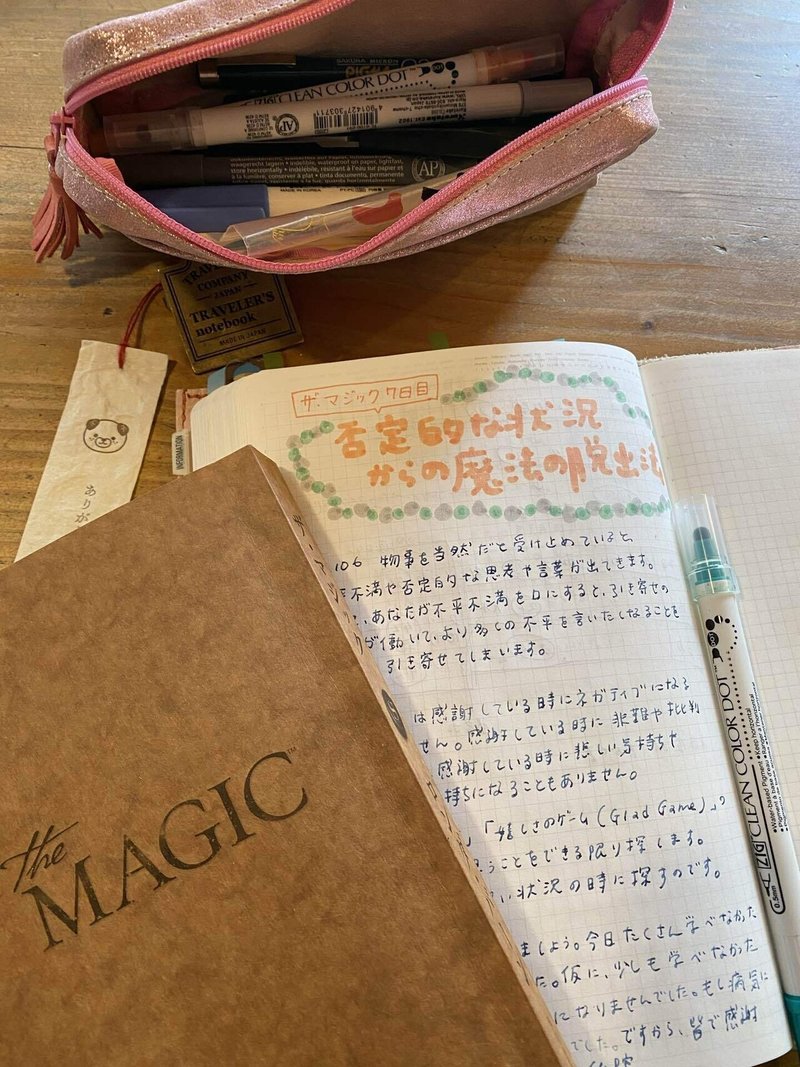 SAKURA MICRON
CLEAN COLOR DOT
ZIG CLEAN COLOR DOT
4 901427 303711
AP
waagerecht lagern • indélébile, résistant à l'eau sur papier, résistant à
store horizontally
MADE IN KOREA
TRAVELER'S
COMPANY
JAPAN
TRAVELER'S
notebook
MADE IN JAPAN
ありが
INFORMATION
ザ・マジック7日目
否定的な状況
からの魔法の脱出法
106 物事を当然だと受け止めていると、
不満や否定的な思考や言葉が出てきます。
、あなたが不平不満を口にすると、引き寄せの
が働いて、より多くの不平を言いたくなることを
引き寄せてしまいます。
は感謝している時にネガティブになる
せん。感謝している時に非難や批判
感謝している時に悲しい気持ちや
持ちになることもありません。
」「嬉しさのゲーム(Glad Game)」の
うことをできる限り探します。
い状況の時に探すのです。
ましょう。今日たくさん学べなかった
た。仮に、少しも学べなかった
になりませんでした。もし病気に
でした。ですから、皆で感謝
the
MAGIC™
ZIG CLEAN COLOR DOT
0.5mm
•Water-based Pigment •Keep horizontal